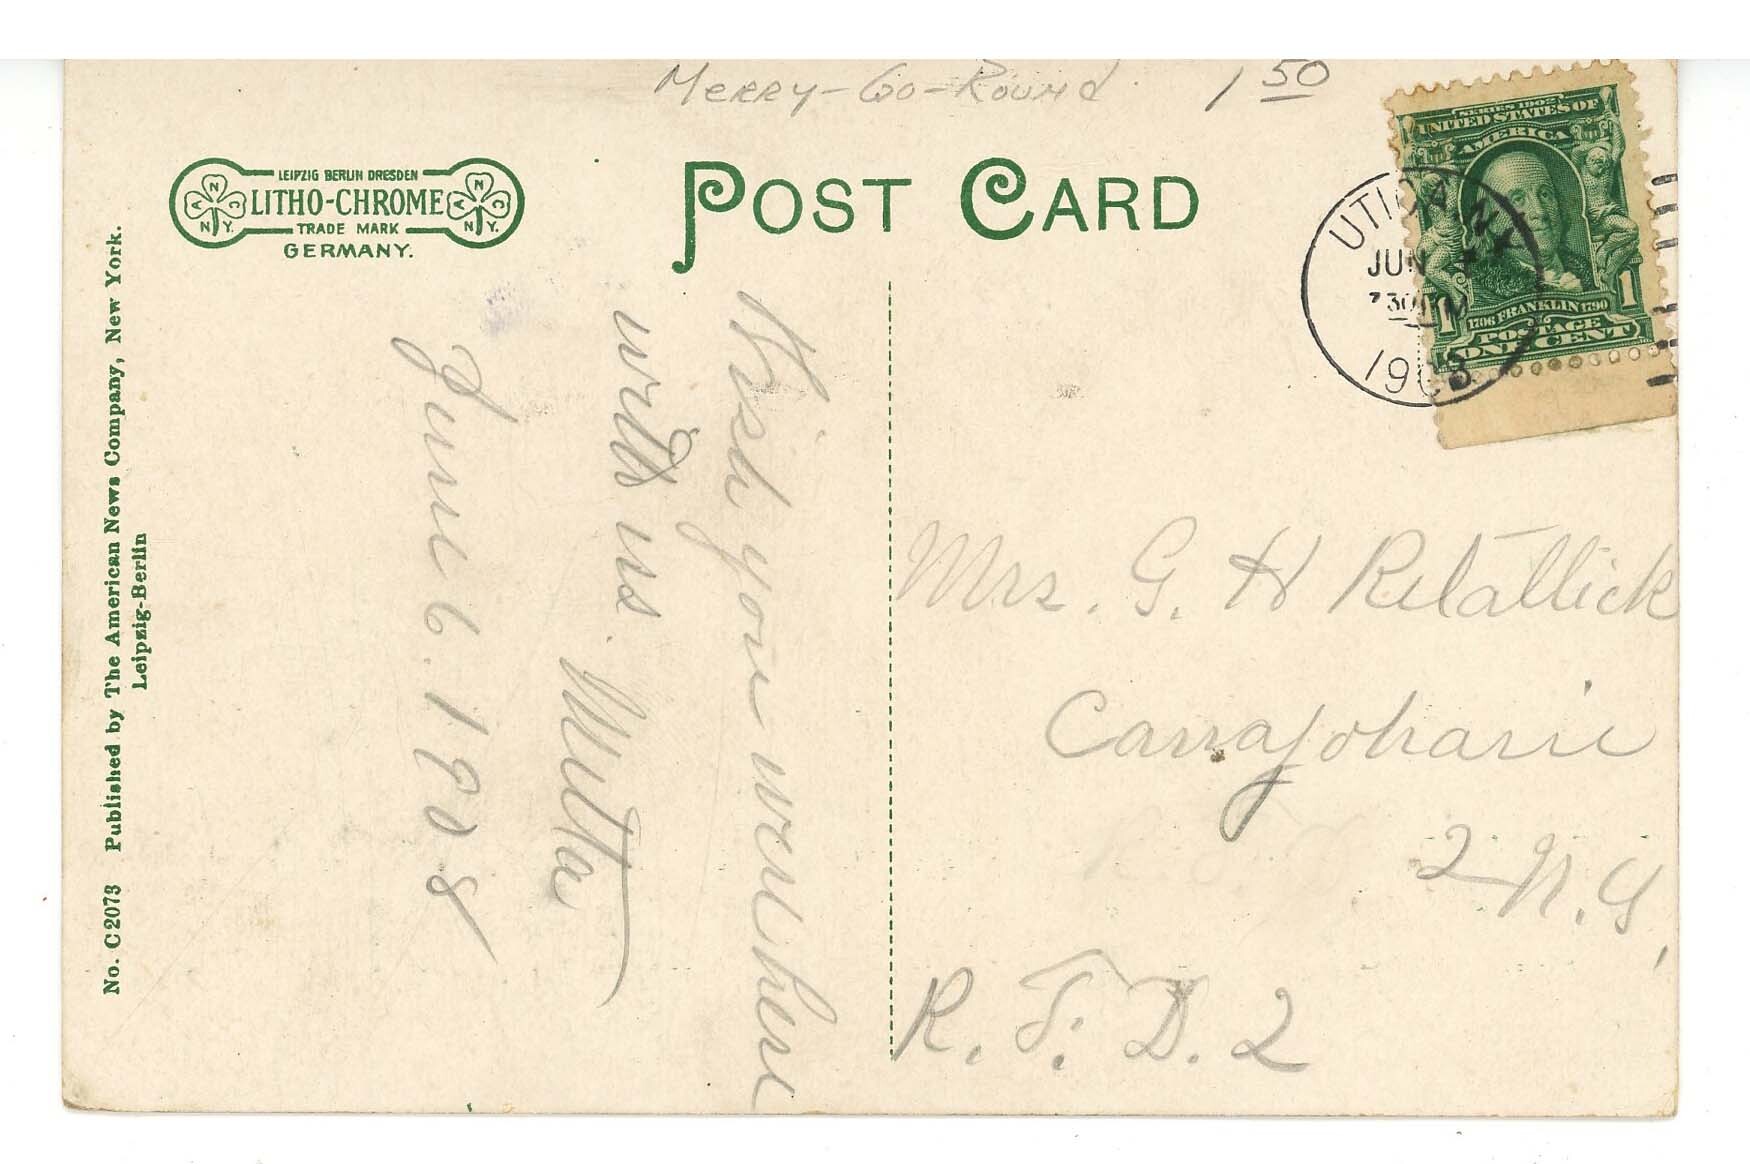 Merry-Go-Round 1 50
LEIPZIG BERLIN DRESDEN
LITHO-CHROME
TRADE MARK
GERMANY.
N
A C
N.Y.
N
A C
N.Y.
POST CARD
SERIES 1902
UNITED STATES OF
AMERICA
1706 FRANKLIN 1790
POSTAGE
ONE CENT
1 1
UTICA, N.Y.
JUN
730 PM
1908
No. C2073 Published by The American News Company, New York.
Leipzig-Berlin
Wish you were here
with us.
June 6. 1908
Mrs. G. H Retallick
Canajoharie
2 N.Y.
R. F. D. 2